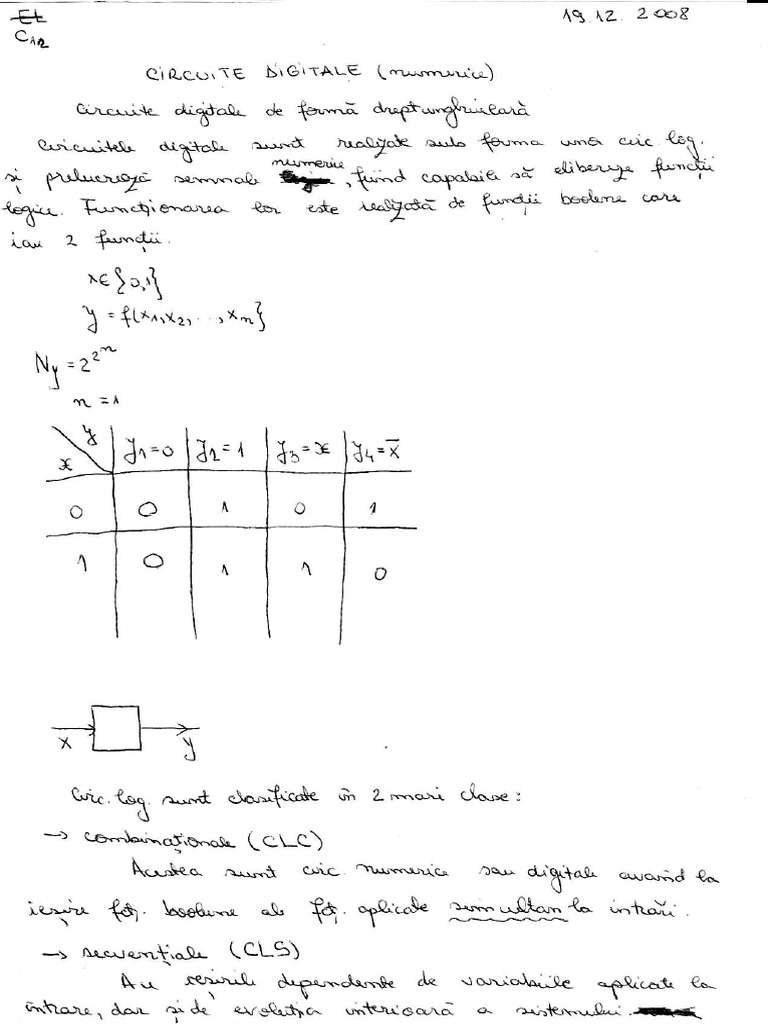 Et
19.12.2008
C12
CIRCUITE DIGITALE (numerice)
Circuite digitale de formă dreptunghiulară
Circuitele digitale sunt realizate sub forma unor circ. log.
și prelucrează semnale numerice, fiind capabile să elibereze funcții
logice. Funcționarea lor este realizată de funcții booleene care
iau 2 funcții.
x∈{0,1}
y = f(x1, x2, ..., xn}
Ny = 2^2^n
n = 1
x \ y | y1=0 | y2=1 | y3=x | y4=x̄
0 | 0 | 1 | 0 | 1
1 | 0 | 1 | 1 | 0
x y
Circ. log. sunt clasificate în 2 mari clase:
→ combinaționale (CLC)
Acestea sunt circ. numerice sau digitale avand la
ieșire fcț. booleene ale fcț. aplicate simultan la intrări.
→ secvențiale (CLS)
Au ieșirile dependente de variabile aplicate la
intrare, dar și de evoluția interioară a sistemului.